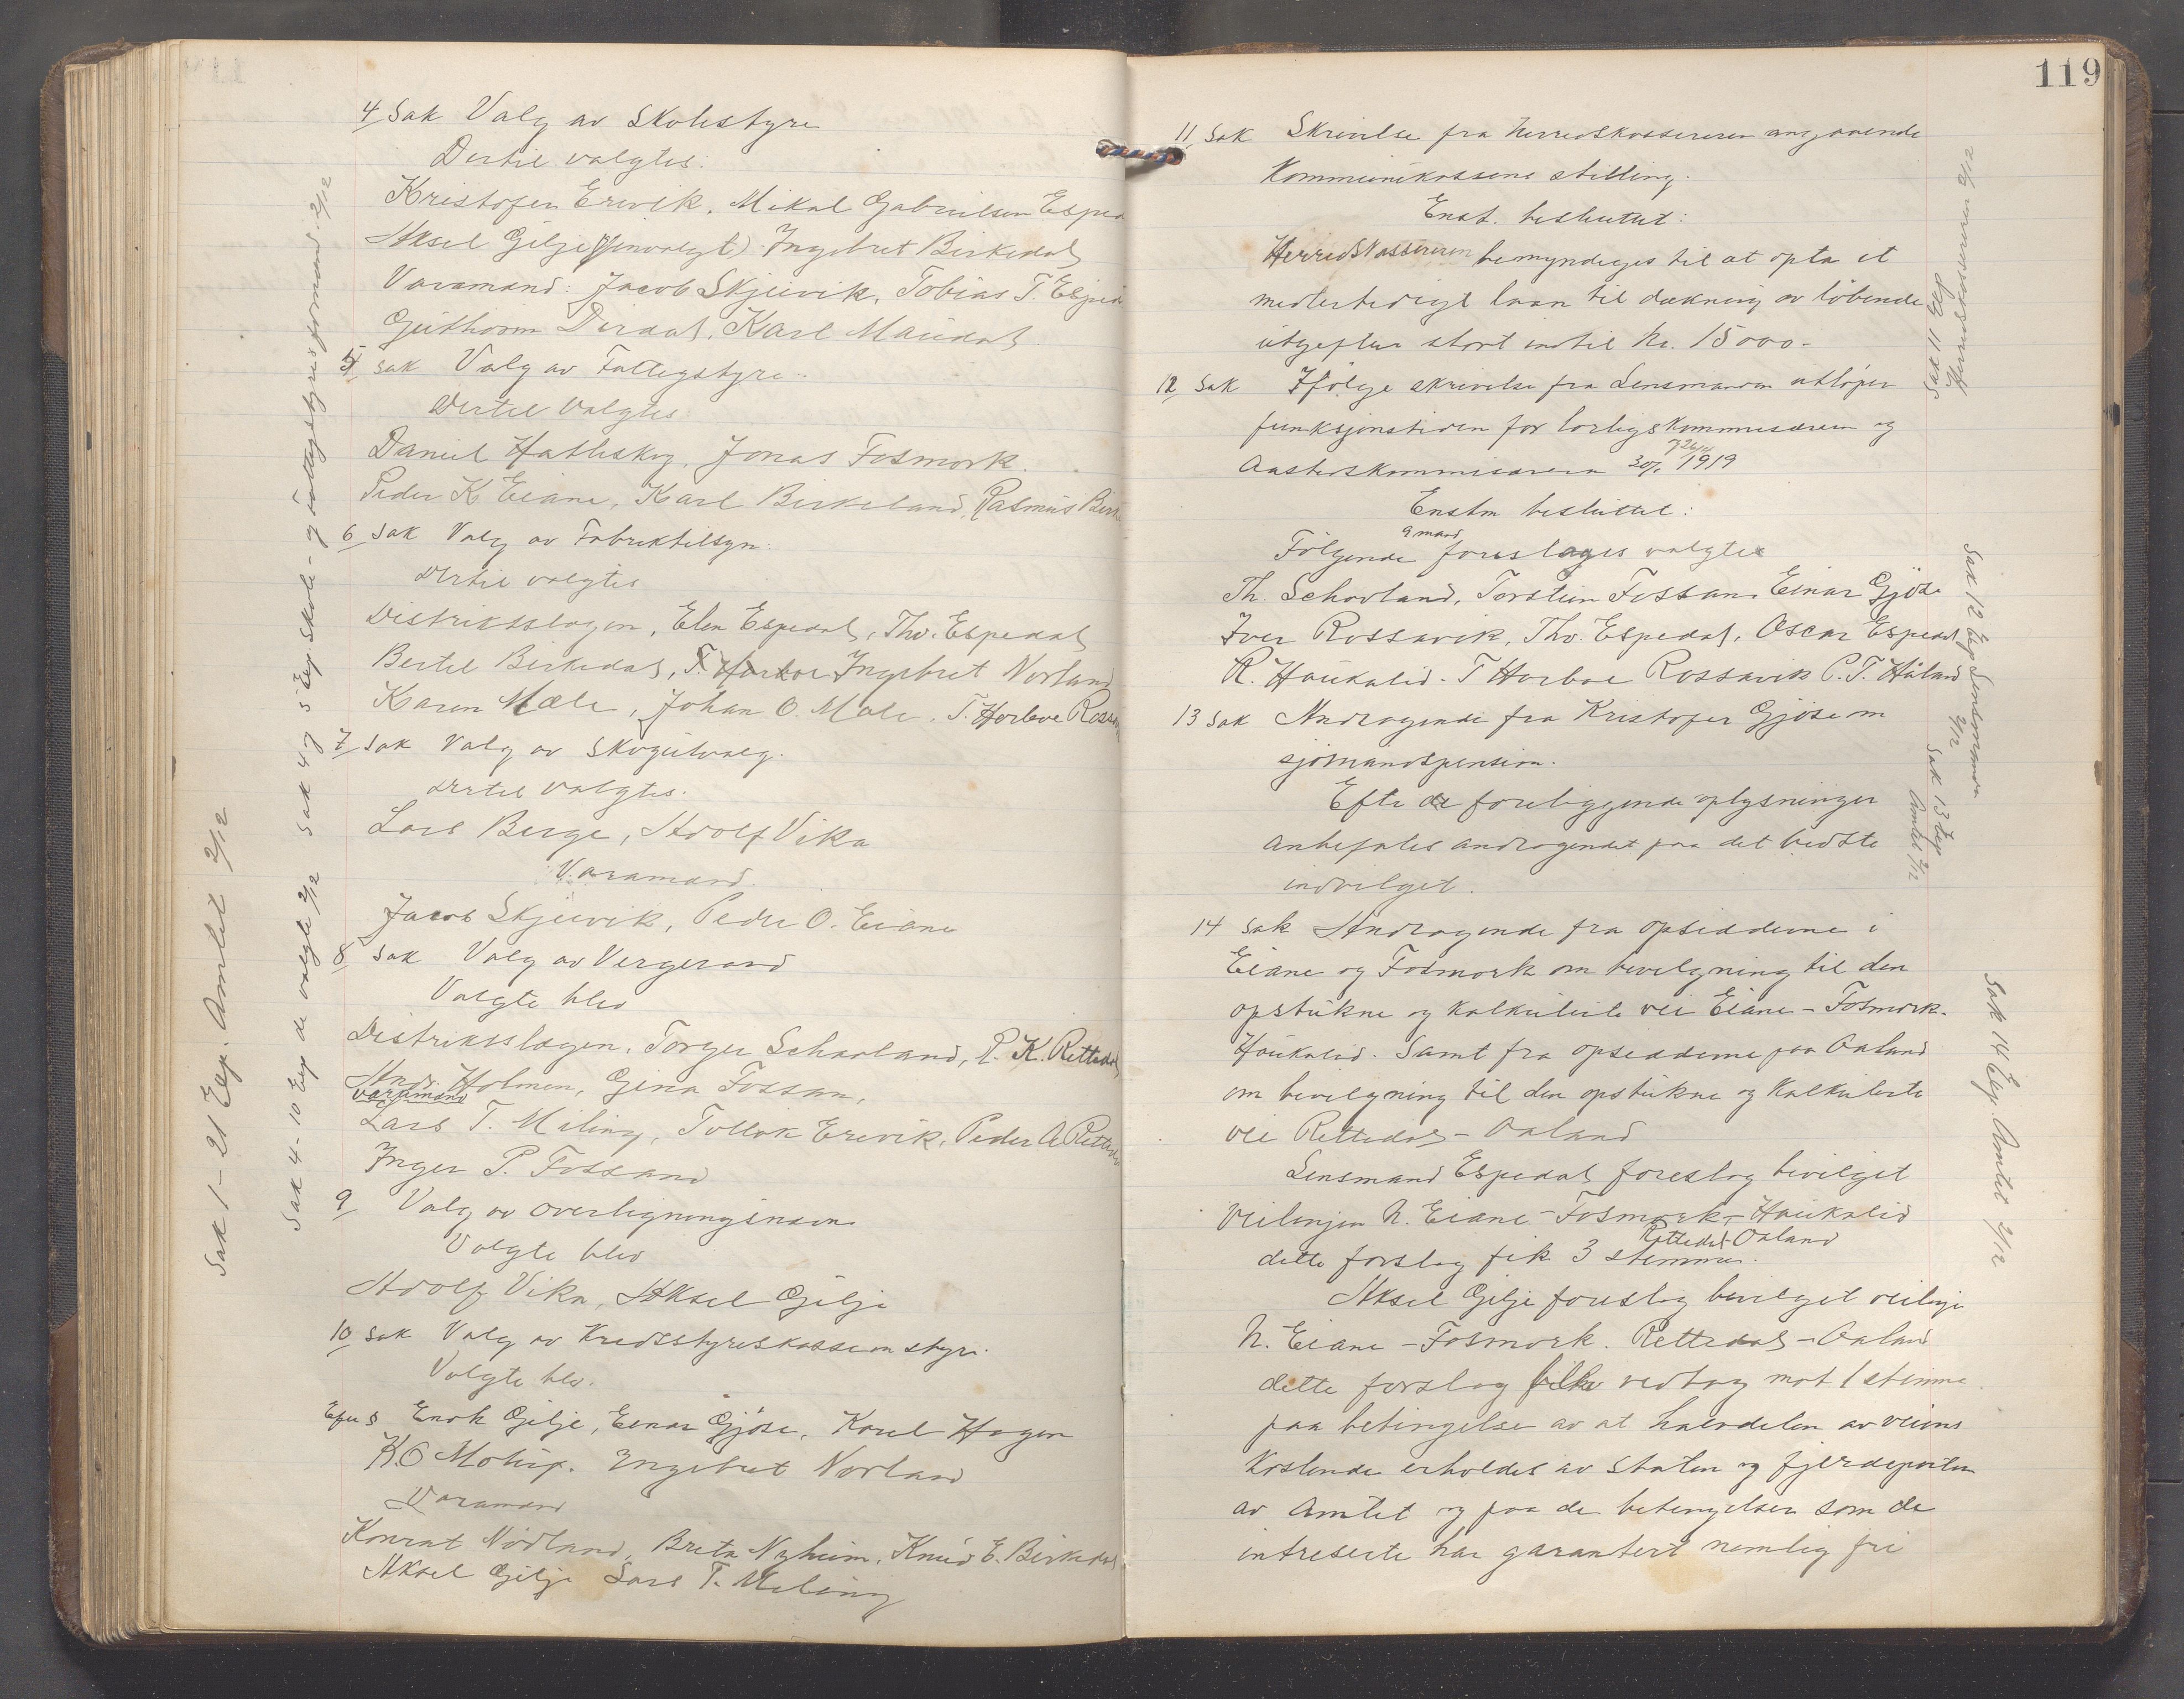 4 Sak Valg av Skolestyre
Dertil valgtes:
Kristofer Erevik, Mikal Gabrielsen Esped
Aksel Gilje (Gjenvalgt) Ingebret Birkedal
Varamand: Jacob Skjeevik, Tobias T. Esped
Guthorm Dirdal, Karl Maudal
5 Sak Valg av Fattigstyre.
Dertil Valgtes:
Daniel Hatleskog, Jonas Fosmork.
Peder K Eiane, Karl Birkeland, Rasmus Birk
6 Sak Valg av Fabriktilsyn.
Dertil valgtes
Distriktslægen, Elen Espedal, Thv. Espedal
Bertel Birkedal, T. Horboe Ingebret Norland
Karen Mæle, Johan O. Mæle, T. Horboe Rossa
7 Sak Valg av Skogutvalg.
Dertil valgtes.
Lars Berge, Adolf Vika
Varamand
Jacob Skjeevik, Peder O. Eiane
8 Sak Valg av Vergeraad
Valgte blev
Distriktslægen, Torger Schaoland, P. K. Rettedal,
Andr. Holmen, Gina Fossan,
Varamand
Lars T. Meling, Tollak Erevik, Peder A Retteda
Inger P. Fossand
9 Valg av overligningsnævn
Valgte blev
Adolf Vika, Aksel Gilje
10 Sak Valg av Kredsstyreskassen styre.
Valgte blev.
Enok Gilje, Einar Gjöse, Karl Hagen
K. O Molaug. Ingebret Norland
Varamand
Konrat Nödland, Breta Nyheim, Knud E. Birkedal
Aksel Gilje Lars T. Meling
Sak 1 - 21 Exp. Amtet 2/12
Sak 4 - 10 Exp de valgte 2/12
Sak 4 og 5 Exp Skole- og fattigstyresformand 2/12
119
11 Sak Skrivelse fra herredskassereren angaaende
Kommunekassens stilling.
Enst. besluttet:
Herredskassereren bemyndiges til at opta et
midlertidigt laan til dækning av löbende
utgifter stort indtil Kr. 15000-
12 Sak Ifölge skrivelse fra Lensmanden utlöper
funksjonstiden for losligskommisæren og
26/11
Aastedskommisæren 30/ 1919
Enstm besluttet:
9 mand
Fölgende foreslages valgte
Th. Schovland, Torstein Fossan, Einar Gjöse
Iver Rossavik, Thv. Espedal, Oscar Espedal
R. Haukalid - T Horboe Rossavik P. T. Håland
13 Sak Andragende fra Kristofer Gjöse om
sjömandspension.
Efte de foreliggende oplysninger
anbefales andragendet paa det bedste
indvilget.
14 Sak Andragende fra opsidderne i
Eiane og Fosmork om bevilgning til den
opstukne og kalkulerte vei Eiane - Fosmork-
Haukalid. Samt fra opsidderne paa Oaland
om bevilgning til den opstukne og kalkulerte
vei Rettedal - Oaland
Lensmand Espedal foreslog bevilget
Veilinjen N. Eiane - Fosmork - Haukalid
Rettedal - Oaland
dette forslag fik 3 stemmer.
Aksel Gilje foreslog bevilget veilinje
N. Eiane - Fosmork. Rettedal - Oaland
dette forslag blev vedtag mot 1 stemme.
paa betingelse av at halvdelen av veiens
Kostende erholdes av Staten og fjerdeparten
av Amtet og paa de betingelser som de
intreserte har garantert nemlig fri
Sak 11 Exp
Herredskassereren 2/12
Sak 12 Exp Lensmanden
2/12
Sak 13 Exp
Amtet 2/12
Sak 14 Exp. Amtet 2/12